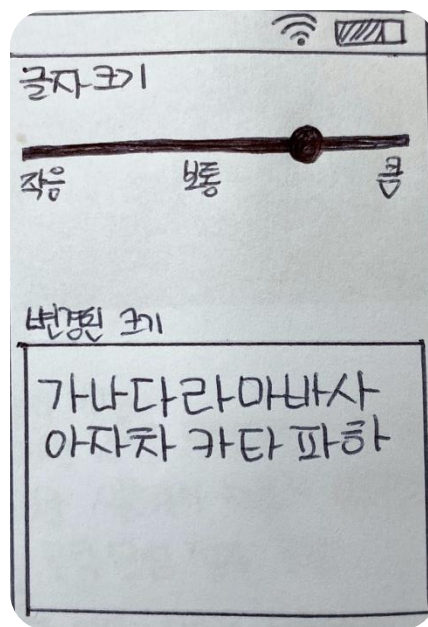 글자 크기
작음 보통 큼
변경된 크기
가나다라마바사
아자차 카타 파하